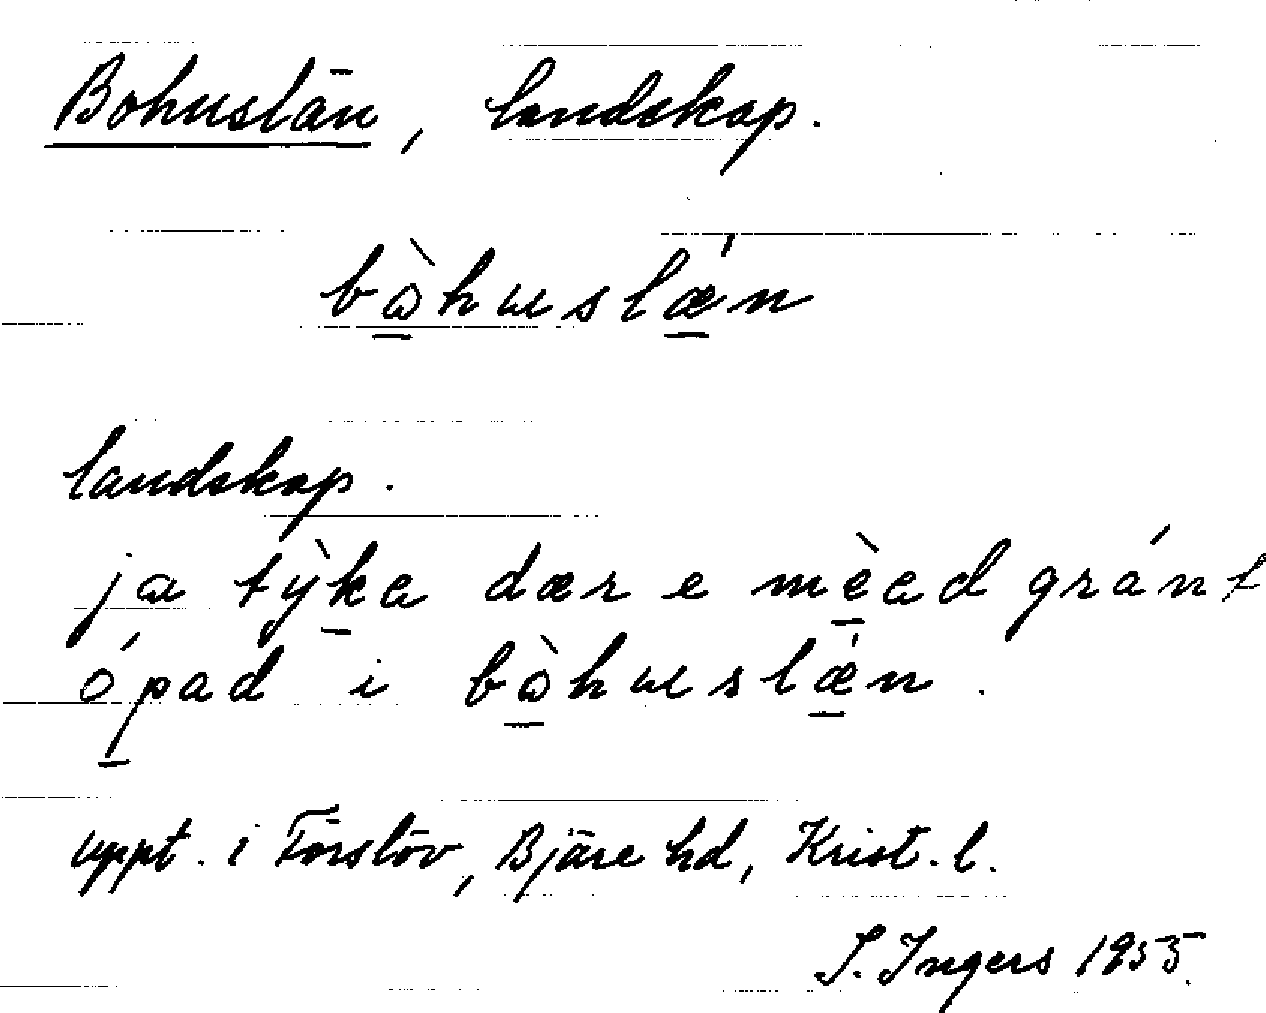 Bohuslän, landskap.
bὼ̱huslǽ̱n
landskap.
ja tỳ̱ka dær e mè̱ad gránt
ó̱pad i bὼ̱huslǽ̱n.
uppt. i Förslöv, Bjäre hd, Krist. l.
I. Ingers 1955.